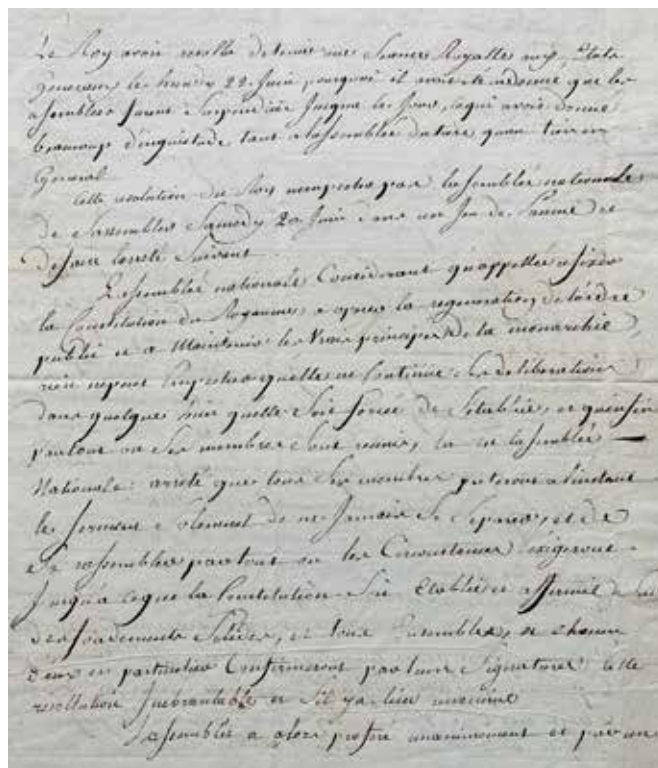 Le Roy avoit resollu de tenir une Seance Royalle aux Etats
Generaux le lundy 22 Juin, pourquoi il avoit ordonné que les
assemblées furent Suspendüe Jusque le Jour, ce qui avoit donné
beaucoup d'inquiétude tant a lassemblée
General
Cette resolution du Roy nempecha pas lassemblée nationale
de Sassembler Samedy 20 Juin dans un Jeu de Paume et
de faire larreté Suivant
Lassemblée nationale Considerant quappellée a fixer
la Constitution du Royaume, a operer la regeneration de lordre
public et a Maintenir les Vrais principes de la monarchie,
rien ne peut Empecher quelle ne Continue Ses deliberations
dans quelque lieu quelle Soit forcée de Setablir, et quenfin
partout ou Ses membres Sont reunis, la est lassemblée
Nationale : arrete que tous Ses membres preteront a linstant
le Serment Solennel de ne Jamais Se Separer, et de
Se rassembler partout ou les Circonstances lexigeront
Jusqua ceque la Constitution Soit Etablie et affermie Sur
des fondements Solides, et tous Ensembles, et chacun
deux en particulier Confirmeront par leur Signature cette
resolution Inebranlable
Lassemblée a alors preté unanimement et par un